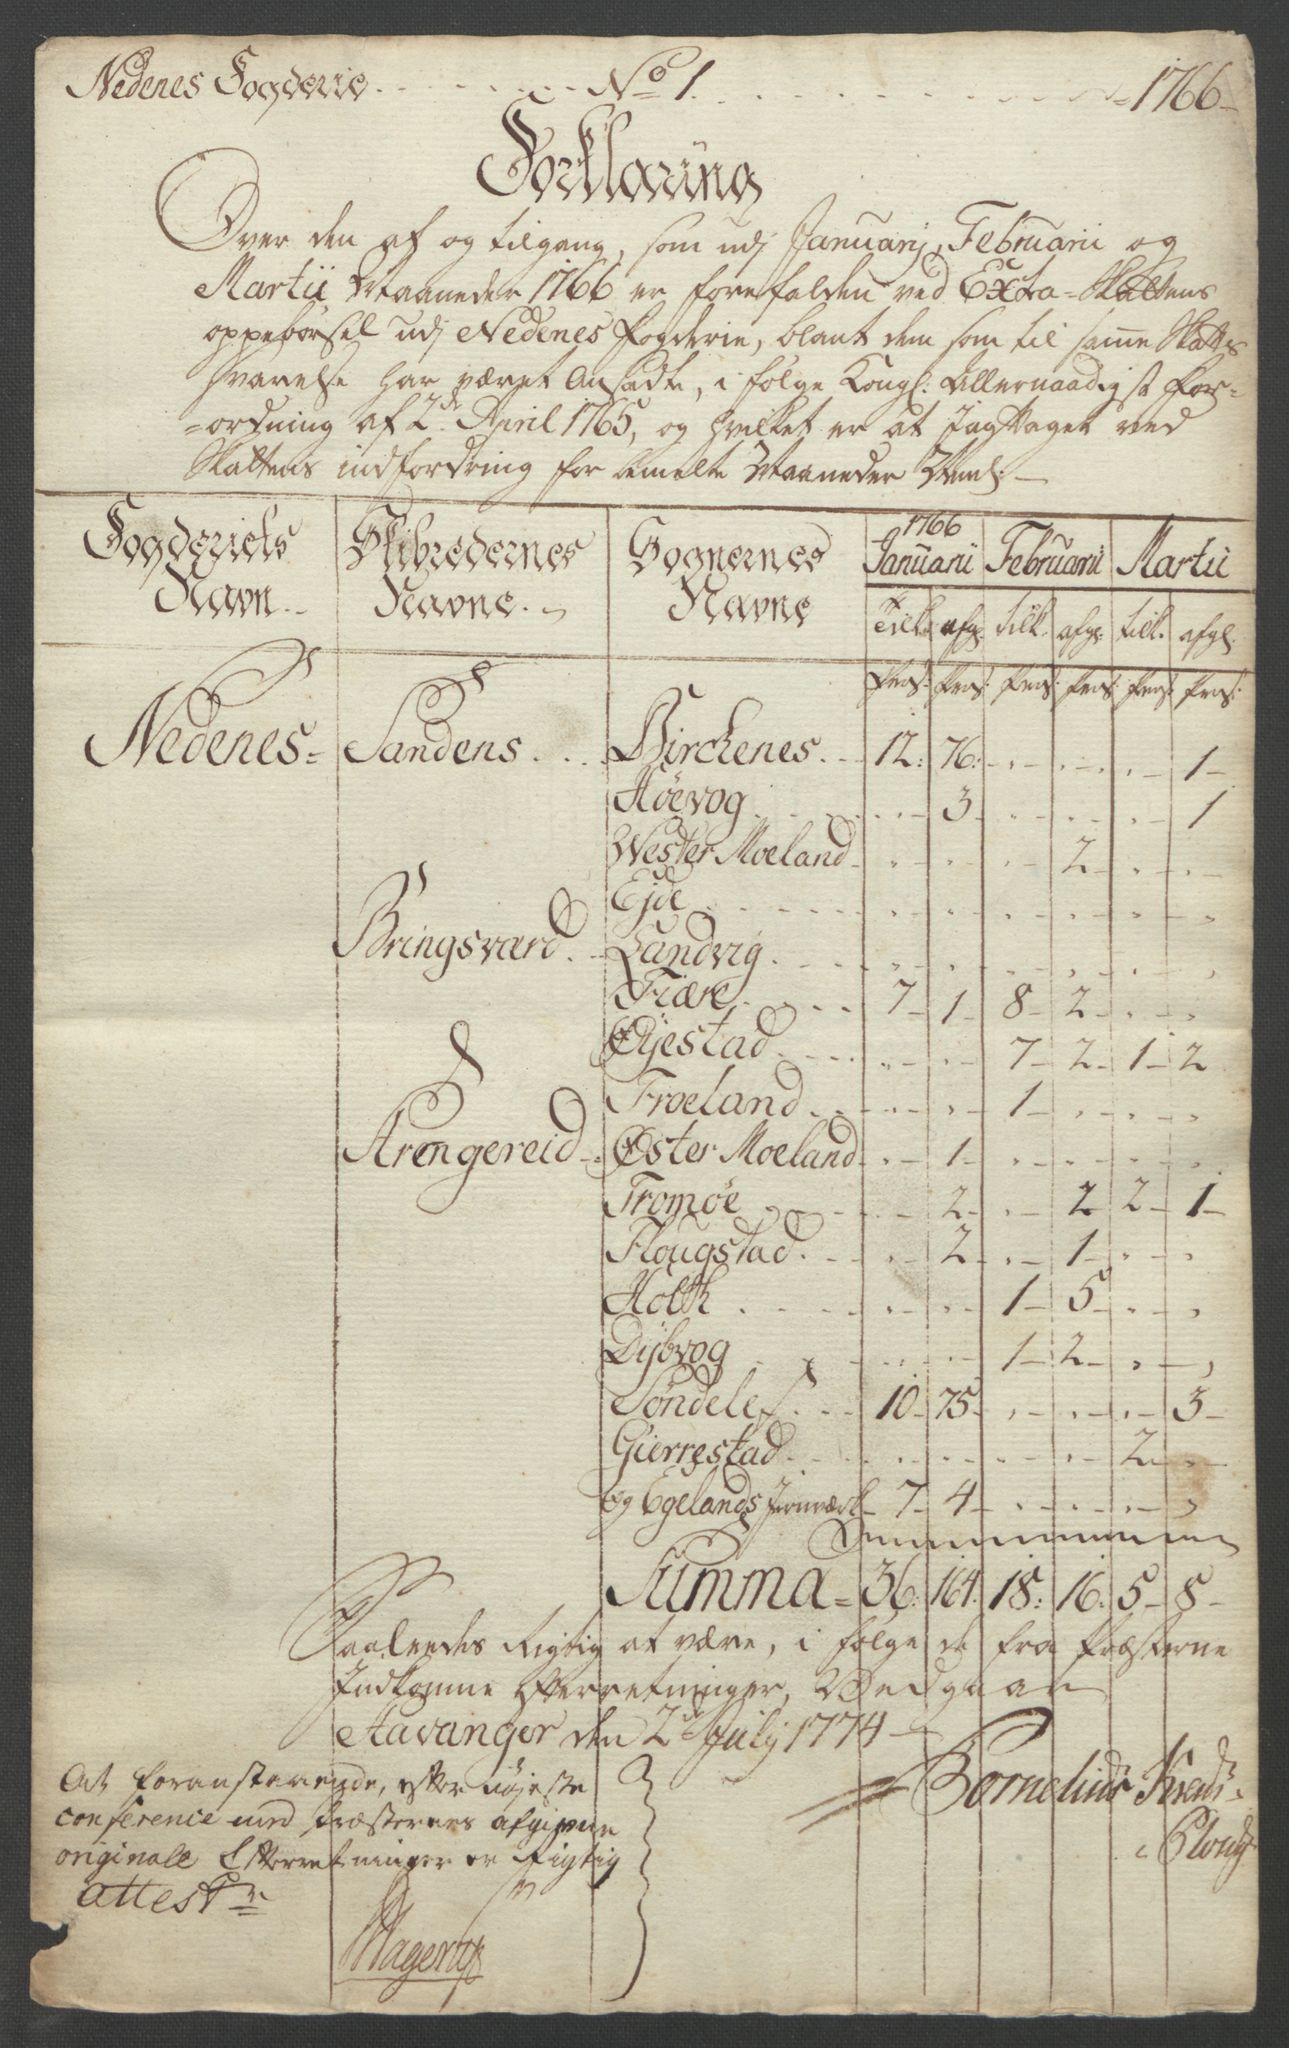 Nedenes Fogderie . . . . . . . No 1. . . . . . . . . . 1766
Forklaring
Over den af og tilgang, som udj Januarij, Februarii og
Martii Maaneder 1766 er forefalden ved Extra-Skattens
oppebørsel udj Nedenes Fogderie, blant dem som til samme Skatts
Svarelse har været Ansadte, i følge Kongl: Allernaadigst For-
=ordning af 2de April 1765, og hvilket er at Jagttages ved
Skattens indfordring for bemelte Maaneder Neml:
Fogderiets Navn. | Skibredernes Navne. | Sognernes Navne | 1766 Januarii | Februarii | Martii
Tilk: | afg: | tilk: | afg: | tilk: | afg:
Pers: | Pers: | Pers: | Pers: | Pers: | Pers:
Nedenes= | Sandens . . . | Birchenes . . | 12: | 76: | . . | . . | . . | 1
Høevog . . . | . . | 3 | . . | . . | . . | 1
Wester Moeland | . . | . . | . . | 2 | . . | . .
Ejde . . . | . . | . . | . . | . . | . . | . .
Bringsværd . . | Landvig . . . | . . | . . | . . | . . | . . | . .
Fiære . . . | 7 | 1 | 8 | 2 | . . | . .
Øyestad . . . | . . | . . | 7 | 2 | 1 | 2
Froeland . . . | . . | . . | 1 | . . | . . | . .
Arengereid . . | Øster Moeland | . . | 1 | . . | . . | . . | . .
Tromøe . . . | . . | 2 | . . | 2 | 2 | 1
Flougstad . . . | . . | 2 | . . | 1 | . . | . .
Holth . . . | . . | . . | 1 | 5 | . . | . .
Dybvog . . . | . . | . . | 1 | 2 | . . | . .
Søndelef . . . | 10 | 75 | . . | . . | . . | 3
Gierrestad . . . | . . | . . | . . | . . | 2 | . .
og Egelands Jernværk | 7 | 4 | . . | . . | . . | . .
Summa = | 36: | 164: | 18: | 16: | 5 | 8
Saaledes Rigtig at være, i følge de fra Præsterne
Indkomne Efterretninger, Vedgaaer
Stavanger den 2de Julij 1774
Cornelius
At foranstaaende, efter nøjeste
conference med Præsternes afgivne
originale Efterretninger er Rigtig
attestr
Hagerup